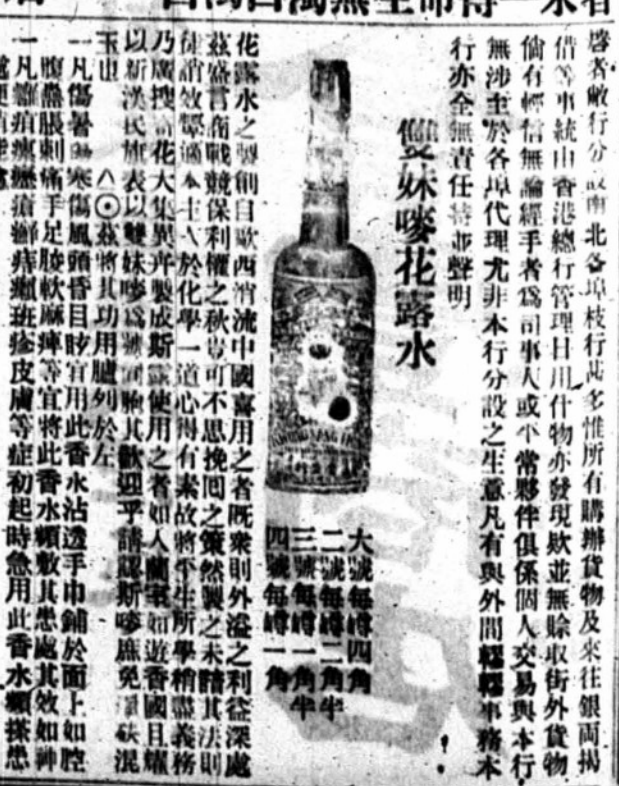 啓者敝行分設南北各埠枝行甚多惟所有購辦貨物及來往銀両揭
借等事統由香港總行管理日用什物亦發現欵並無賒取街外貨物
倘有輕信無論經手者為司事人或平常夥伴俱係個人交易與本行
無涉至於各埠代理尤非本行分設之生意凡有與外間轇轕事務本
行亦全無責任特並聲明
雙妹嘜花露水
大號每罇四角
二號每罇二角半
三號每罇一角半
四號每罇一角
花露水之製創自歐西淌流中國喜用之者既衆則外溢之利益深處
茲盛言商戰競保利權之秋豈可不思挽回之策然製之未諳其法則
徒謂效顰適本主人於化學一道心得有素故將平生所學稍盡義務
乃廣搜諸花大集異卉製成斯露使用之者如人蘭室如遊香國且耀
以新漢民旗表以雙妹嘜為號 其歡迎乎請認斯嘜庶免 混
玉也 茲將其功用臚列於左
一凡傷暑 寒傷風頭昏目眩宜用此香水沾透手巾鋪於面上如腔
腹熱脹刺痛手足酸軟麻痺等宜將此香水頻敷其患處其效如神
一凡 痕 瘡癬痔癩班疹皮膚等症初起時急用此香水頻搽患